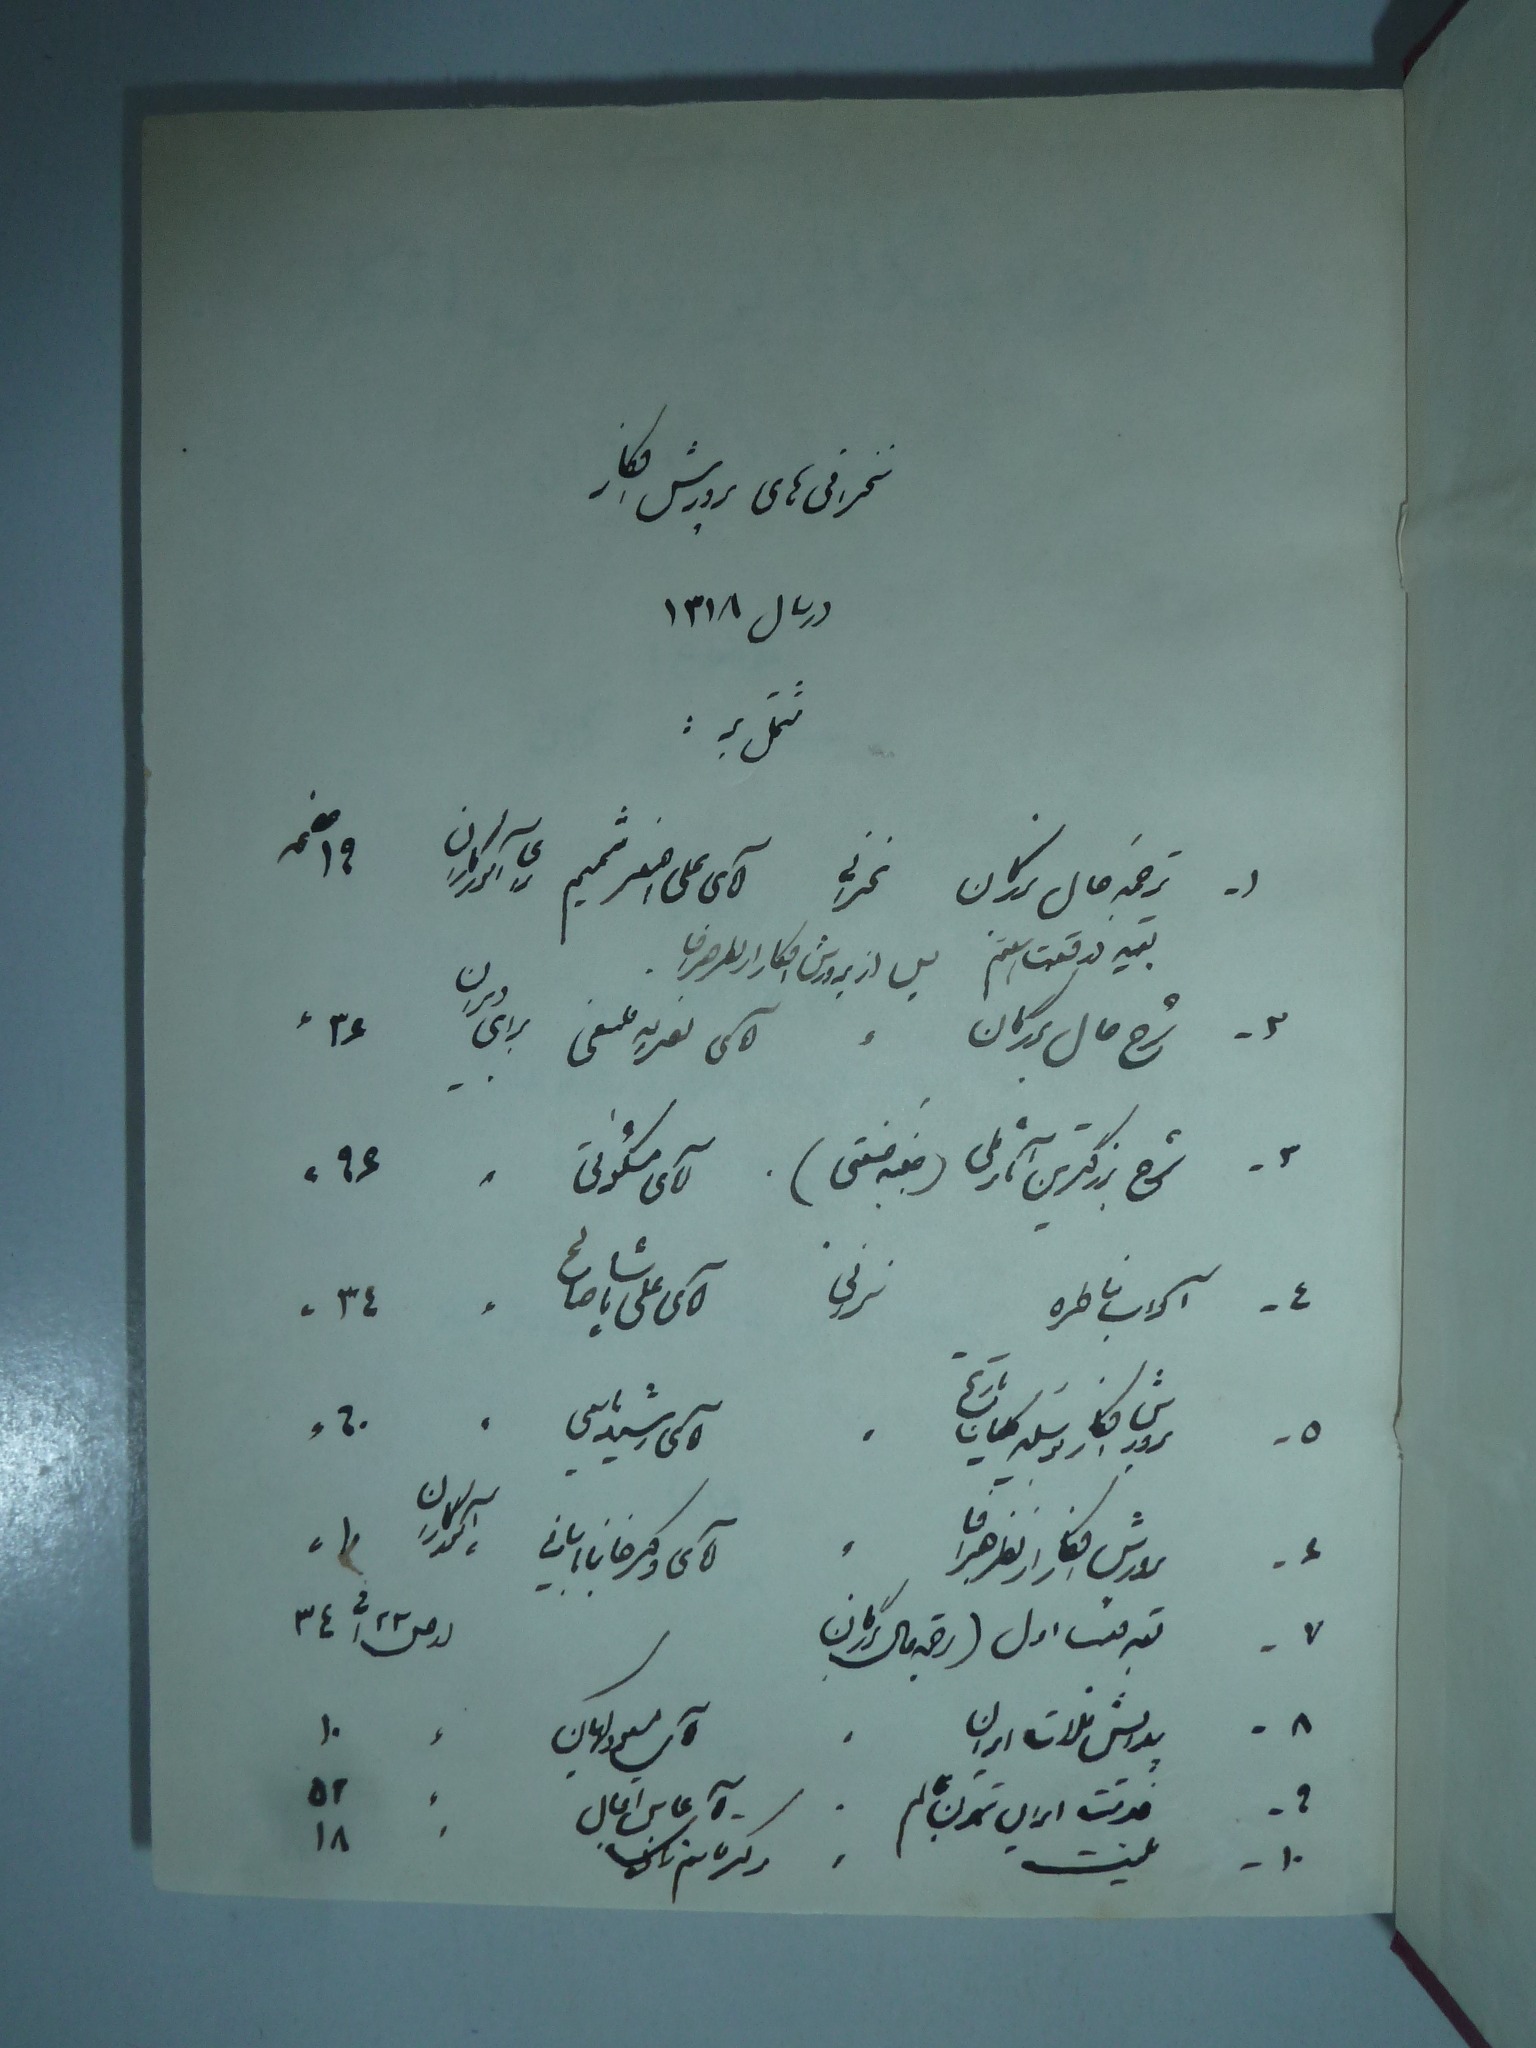 سخنرانی های پرورش افکار
در سال ۱۳۱۸
مشتمل بر :
۱- ترجمه حال بزرگان سخنرانی آقای علی اصغر شمیم برای آموزگاران ۱۹ صفحه
بقیه در قسمت هفتم پس از پرورش افکار از نظر جغرافیا .
۲- شرح حال بزرگان " آقای نصرالله فلسفی برای دبیران ۳۶ "
۳- شرح بزرگترین آثار ملی (جنبه صنعتی) . آقای مشکوتی " ۹۶ "
۴- آداب مناظره سخنرانی آقای علی پاشا صالح " ۳۴ "
۵- پرورش افکار بوسیله کلیات تاریخ " آقای رشید یاسمی " ۶۰ "
۶- پرورش افکار از نظر جغرافیا " آقای دکتر خانبابا بیانی آموزگاران ۱۰ "
۷- بقیه قسمت اول (ترجمه حال بزرگان از ص ۲۲ الی ۳۴
۸- پیدایش فلات ایران " آقای مسعود کیهان " ۱۰
۹- خدمت ایران بتمدن عالم " آقای عباس اقبال " ۵۲
۱۰- " دکتر " ۱۸